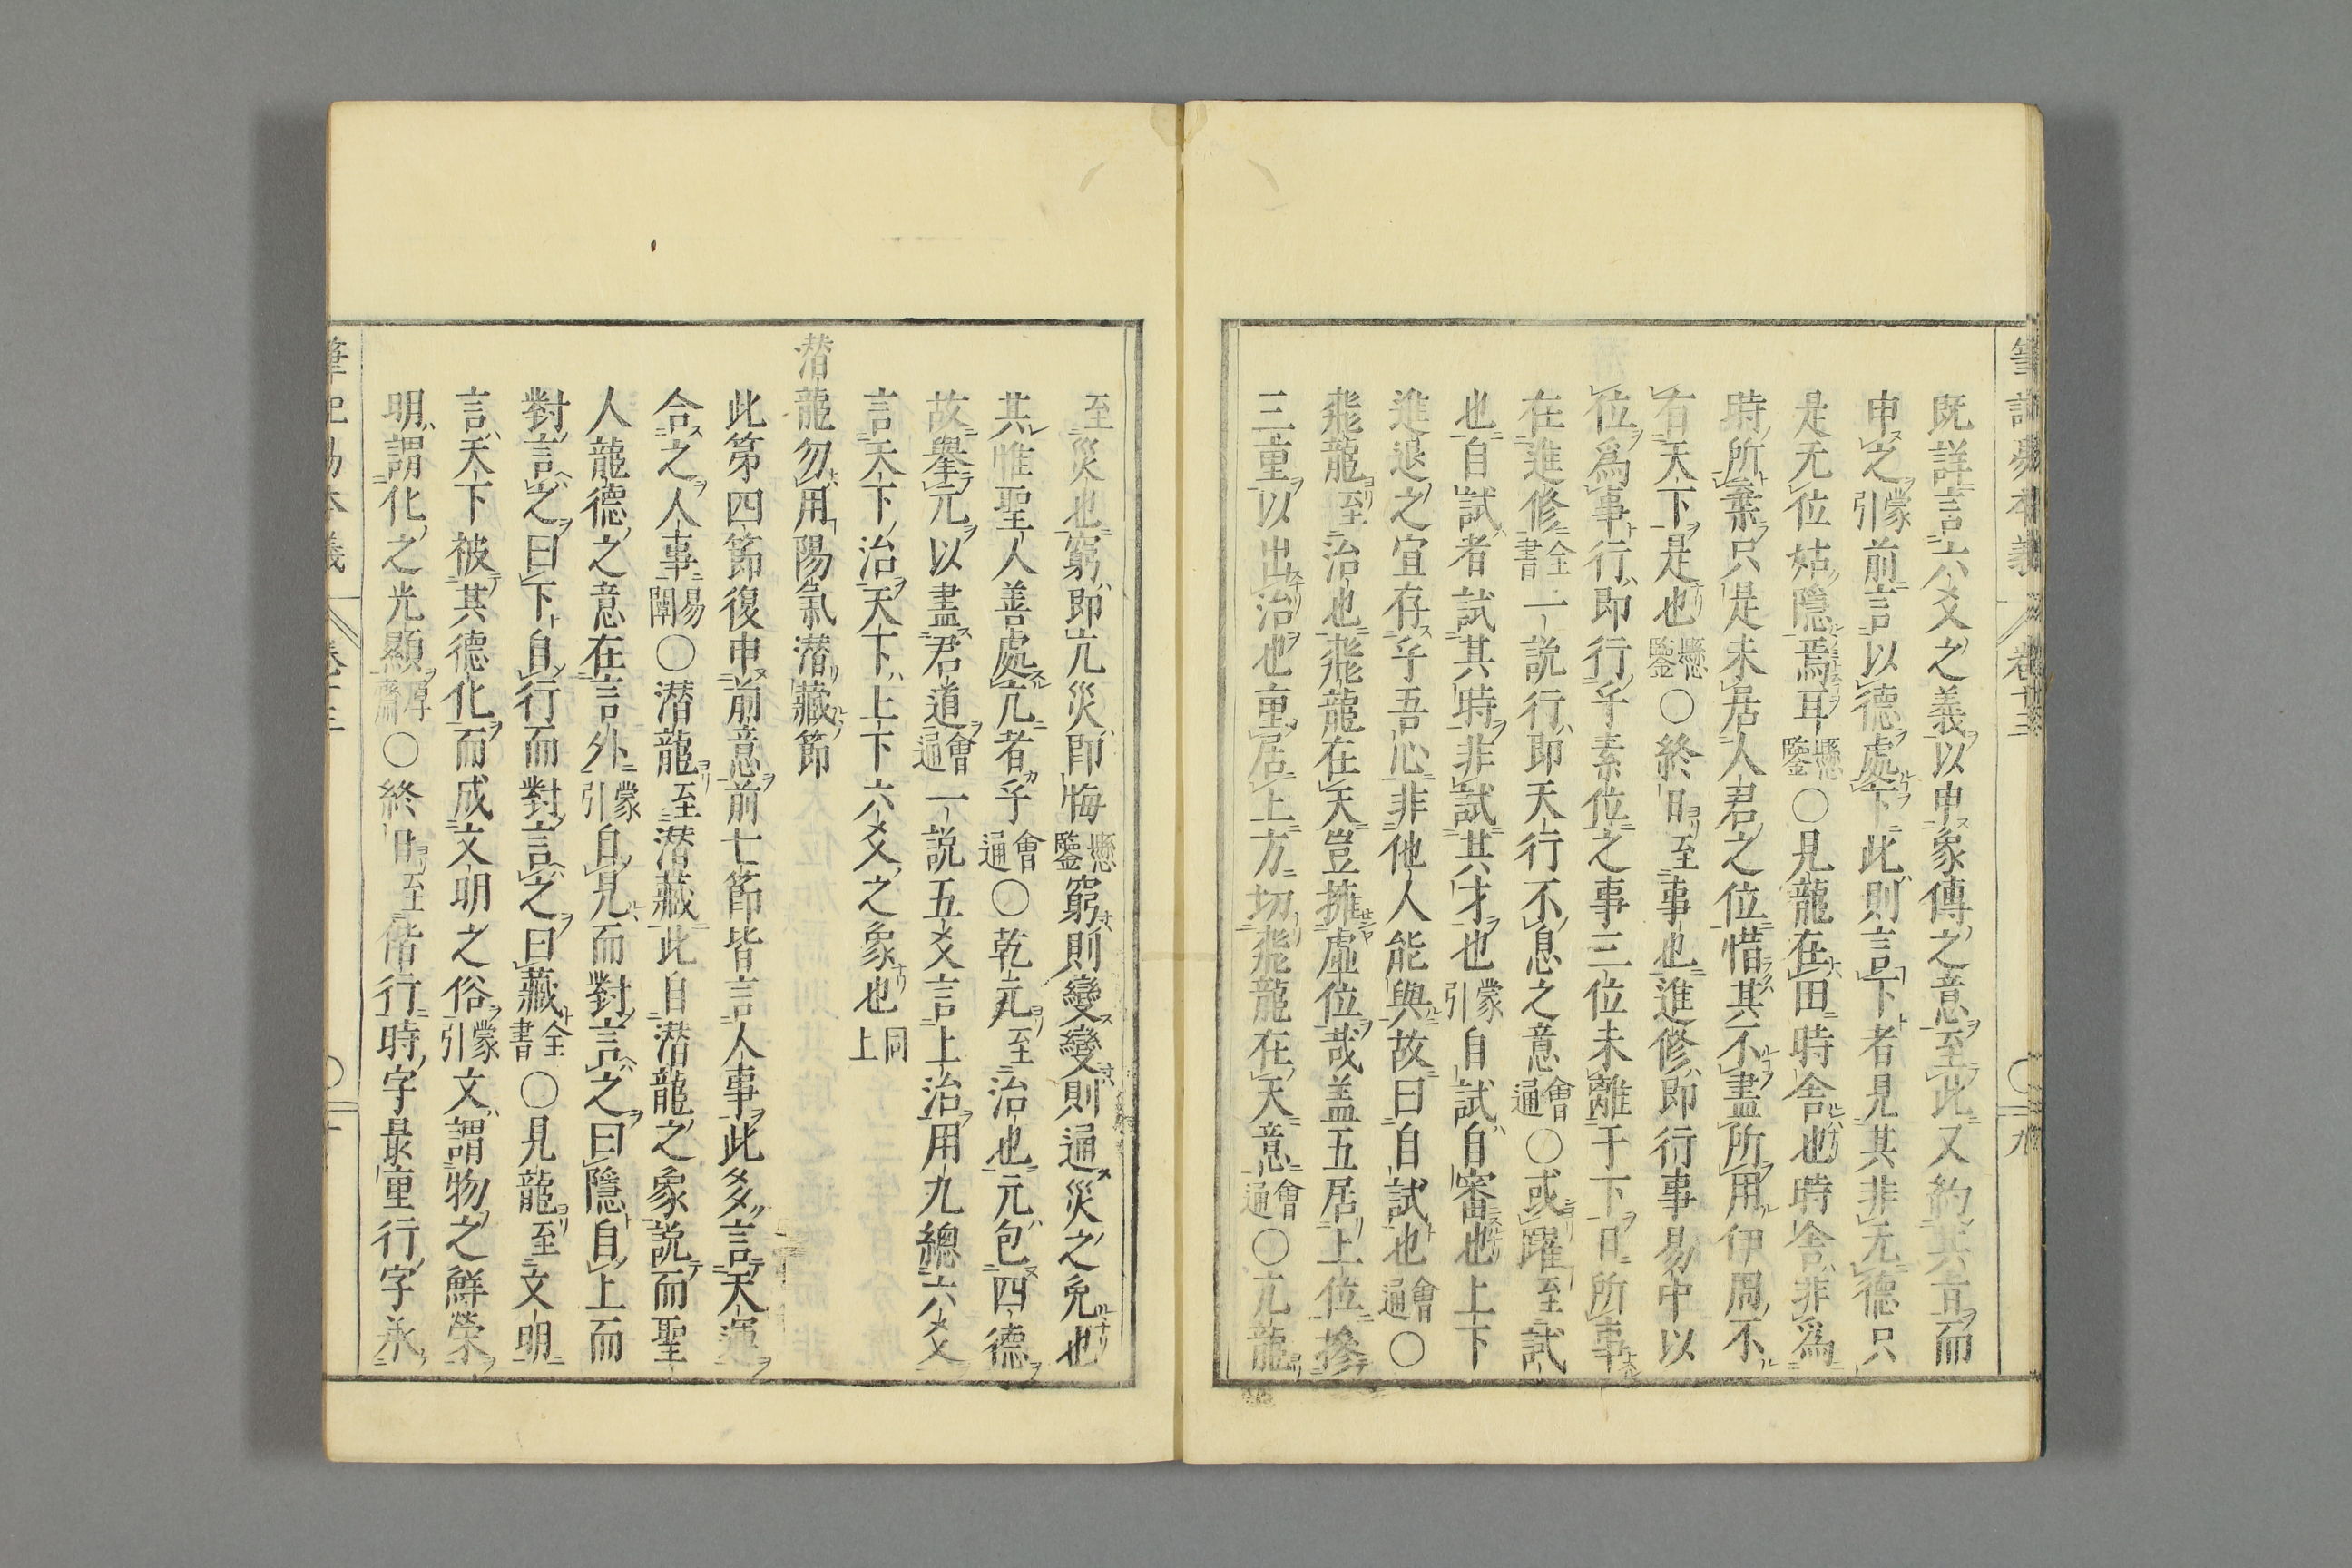 既詳言六爻之義以申象傳之意至此又約其旨而
申之蒙引前言以德處下此則言下者見其非无德只
是无位姑隱焉耳懸鑒〇見龍在田時舍也時舍非爲
時所棄只是未居人君之位惜其不盡所用伊周不
有天下是也懸鑒〇終日至事也進修即行事易中以
位爲事行即行乎素位之事三位未離于下日所事
在進修全書一說行即天行不息之意會通〇或躍至試
也自試者試其時非試其才也蒙引自試自審也上下
進退之宜存乎吾心非他人能與故曰自試也會通〇
飛龍至治也飛龍在天豈擁虛位哉盖五居上位摻
三重以出治也重居上方切飛龍在天意會通〇亢龍
至災也窮即亢災即悔懸鑒窮則變變則通災之免也
其惟聖人善處亢者乎會通〇乾元至治也元包四德
故舉元以盡君道會通一說五爻言上治用九總六爻
言天下治天下上下六爻之象也同上
潜龍勿用陽氣潜藏節
此第四節復申前意前七節皆言人事此多言天運
合之人事易闡〇潜龍至潜藏此自潜龍之象說而聖
人龍德之意在言外蒙引自見而對言之曰隱自上而
對言之曰下自行而對言之曰藏全書〇見龍至文明
言天下被其德化而成文明之俗蒙引文謂物之鮮榮
明謂化之光顯〇終日至偕行時字最重行字承